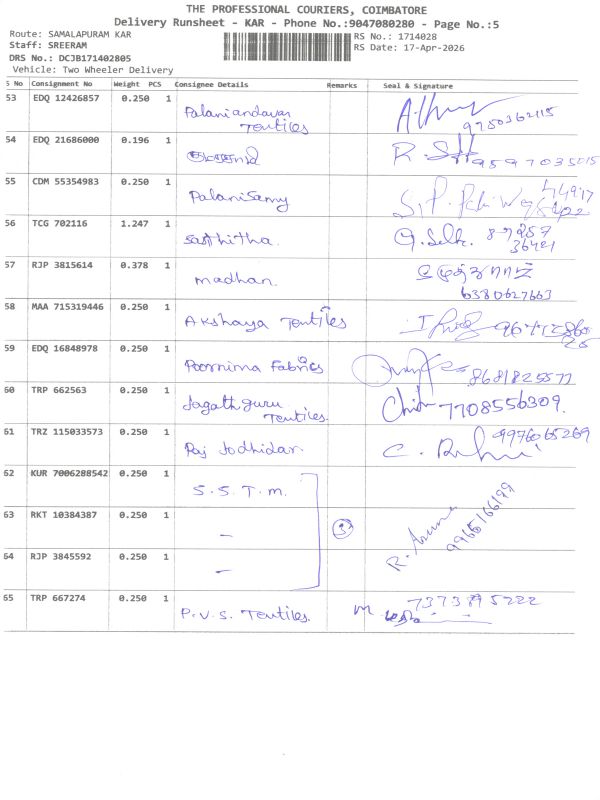 THE PROFESSIONAL COURIERS, COIMBATORE
Delivery Runsheet - KAR - Phone No.:9047080280 - Page No.:5
Route: SAMALAPURAM KAR
RS No.: 1714028
Staff: SREERAM
RS Date: 17-Apr-2026
DRS No.: DCJB171402805
Vehicle: Two Wheeler Delivery
S No Consignment No Weight PCS Consignee Details Remarks Seal & Signature
53 EDQ 12426857 0.250 1 Palaniandavar
Textiles 9750362115
54 EDQ 21686000 0.196 1 9597035015
55 CDM 55354983 0.250 1 Palanisamy
56 TCG 702116 1.247 1 Sasthitha.
57 RJP 3815614 0.378 1 madhan. முத்துராஜ்
6380627663
58 MAA 715319446 0.250 1 Akshaya Textiles
59 EDQ 16848978 0.250 1 Poornima Fabrics 8681825577
60 TRP 662563 0.250 1 Jagathguru
Textiles. 7708556309.
61 TRZ 115033573 0.250 1 Raj Jodhidar. 9976065269
62 KUR 7006288542 0.250 1 S.S.T.m.
63 RKT 10384387 0.250 1 — 3 R. Arun 9965166199
64 RJP 3845592 0.250 1 —
65 TRP 667274 0.250 1 P.V.S. Textiles. 7373895222